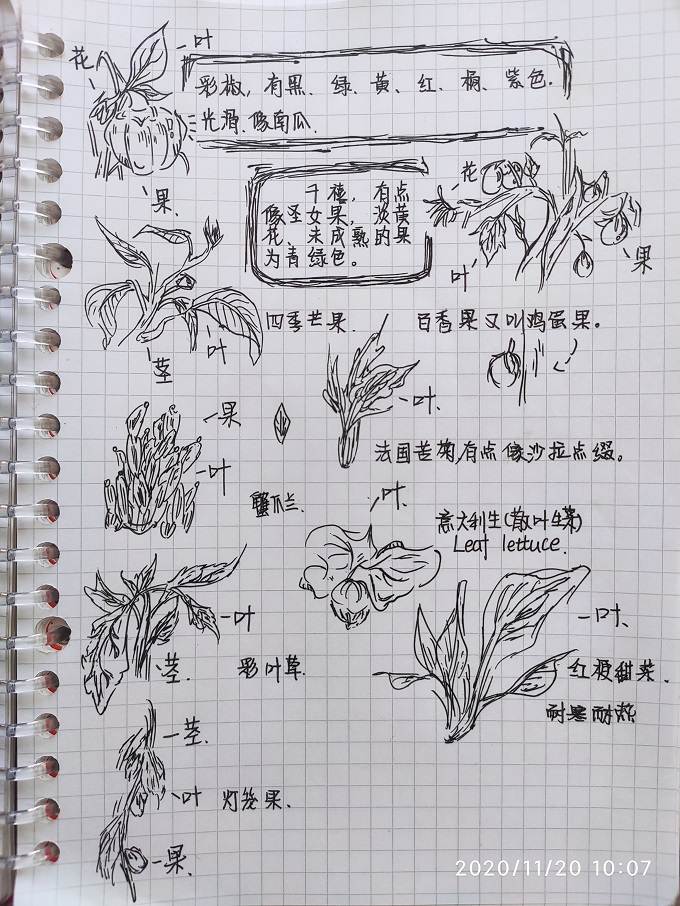 花
叶
彩椒，有黑、绿、黄、红、橘、紫色.
光滑、像南瓜.
果.
千禧，有点
像圣女果，淡黄
花、未成熟的果
为青绿色。
花
叶
果
四季芒果.
叶
茎
百香果又叫鸡蛋果。
果
叶
蟹爪兰.
叶.
法国苦菊,有点像沙拉点缀。
叶.
意大利生(散叶生菜)
Leaf lettuce.
叶
茎.
彩叶草.
叶、
红梗甜菜.
耐寒耐热
茎.
叶
灯笼果.
果.
2020/11/20 10:07